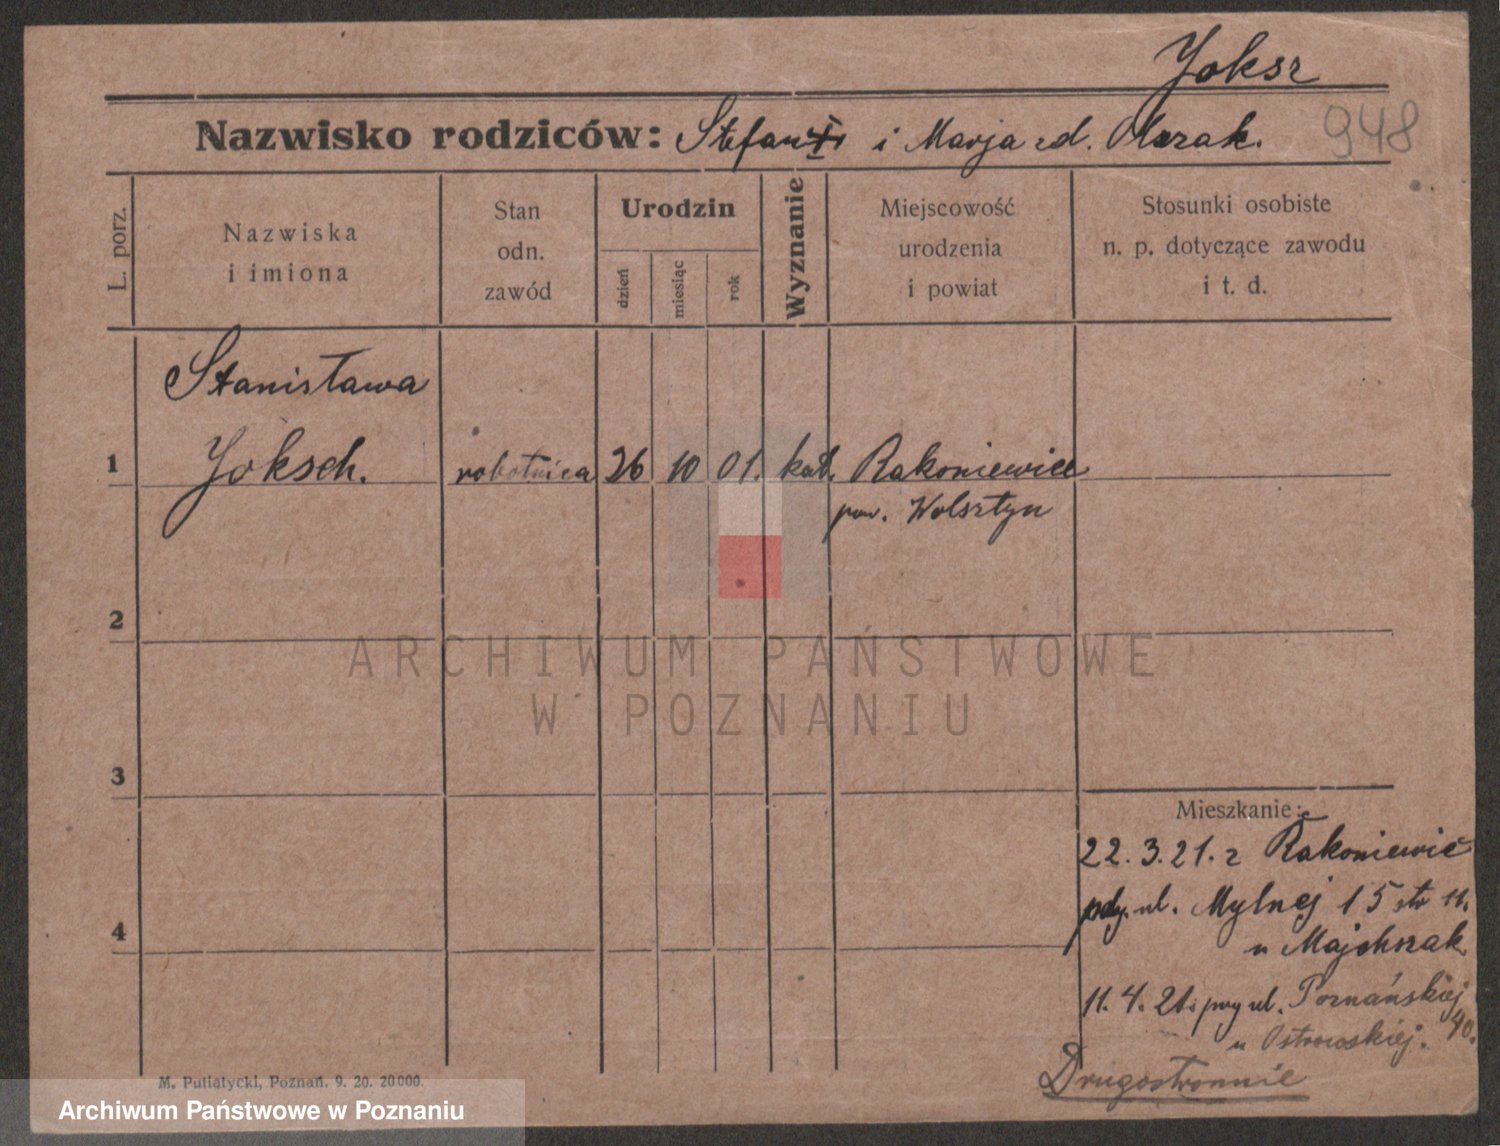 Joksz
948
Nazwisko rodziców: Stefan i Marja zd. Olszak.
L. porz.
Nazwiska
i imiona
Stan
odn.
zawód
Urodzin
dzień
miesiąc
rok
Wyznanie
Miejscowość
urodzenia
i powiat
Stosunki osobiste
n. p. dotyczące zawodu
i t. d.
Stanisława
1 Joksch. robotnica 26 10 01. kat. Rakoniewice
pow. Wolsztyn
2
ARCHIWUM PAŃSTWOWE
W POZNANIU
3
Mieszkanie:
22. 3. 21. z Rakoniewic
ul. Mylnej 15 11.
u Majchrzak
4
11. 4. 21. przy ul. Poznańskiej
40.
u Ostrowskiej.
Drugostronnie
M. Putiatycki, Poznań. 9. 20. 20000.
Archiwum Państwowe w Poznaniu